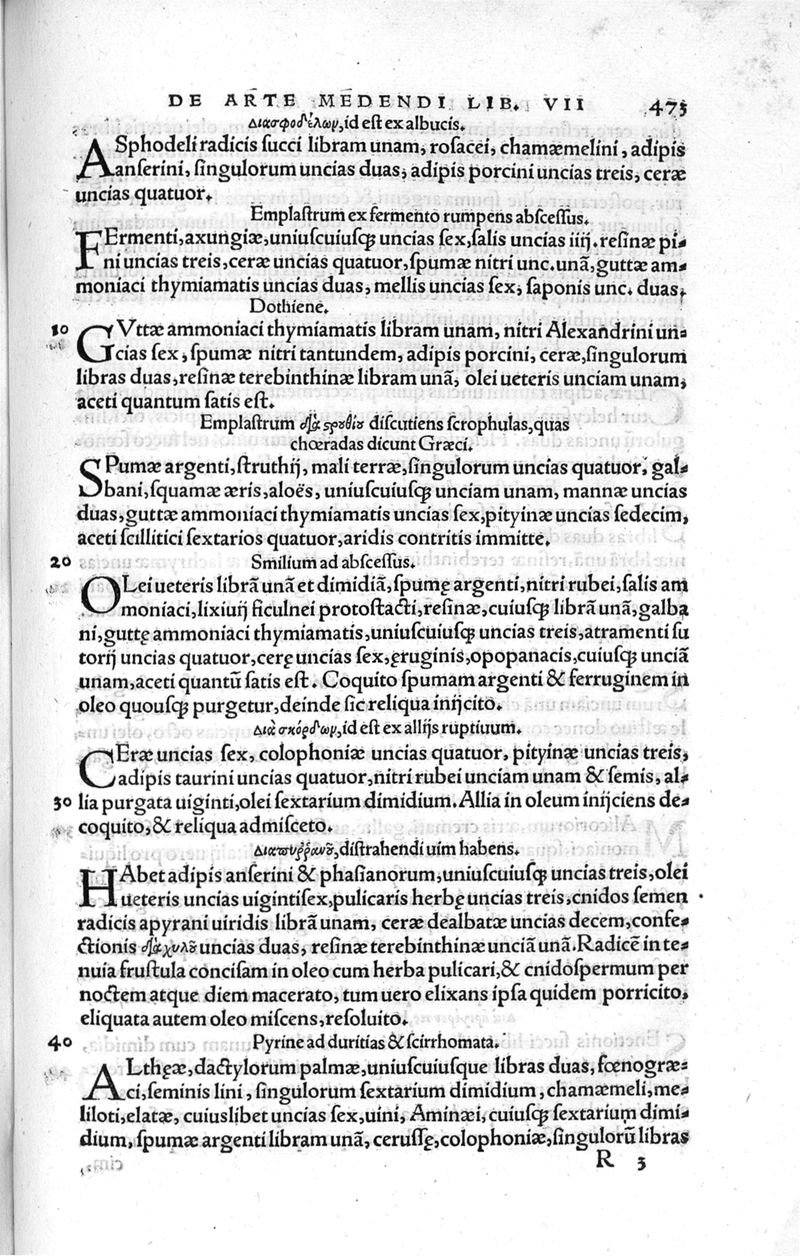 DE ARTE MEDENDI LIB. VII 473
Διασφοδέλων, id est ex albucis.
ASphodeli radicis succi libram unam, rosacei, chamæmelini, adipis
anserini, singulorum uncias duas, adipis porcini uncias treis, ceræ
uncias quatuor.
Emplastrum ex fermento rumpens abscessus.
FErmenti, axungiæ, uniuscuiusq́; uncias sex, salis uncias iiij. resinæ pi-
ni uncias treis, ceræ uncias quatuor, spumæ nitri unc. unã, guttæ am-
moniaci thymiamatis uncias duas, mellis uncias sex, saponis unc. duas.
Dothiene.
10 GVttæ ammoniaci thymiamatis libram unam, nitri Alexandrini un-
cias sex, spumæ nitri tantundem, adipis porcini, ceræ, singulorum
libras duas, resinæ terebinthinæ libram unã, olei ueteris unciam unam,
aceti quantum satis est.
Emplastrum διὰ στρουθίου discutiens scrophulas, quas
chœradas dicunt Græci.
SPumæ argenti, struthij, mali terræ, singulorum uncias quatuor, gal-
bani, squamæ æris, aloës, uniuscuiusq́; unciam unam, mannæ uncias
duas, guttæ ammoniaci thymiamatis uncias sex, pityinæ uncias sedecim,
aceti scillitici sextarios quatuor, aridis contritis immitte.
20 Smilium ad abscessus.
OLei ueteris librã unã et dimidiã, spumę argenti, nitri rubei, salis am
moniaci, lixiuij ficulnei protostacti, resinæ, cuiusq́; librã unã, galba
ni, guttę ammoniaci thymiamatis, uniuscuiusq́; uncias treis, atramenti su
torij uncias quatuor, cerę uncias sex, ęruginis, opopanacis, cuiusq́; unciã
unam, aceti quantũ satis est. Coquito spumam argenti & ferruginem in
oleo quousq́; purgetur, deinde sic reliqua inijcito.
Διὰ σκόρδων, id est ex allijs ruptiuum.
CEræ uncias sex, colophoniæ uncias quatuor, pityinæ uncias treis,
adipis taurini uncias quatuor, nitri rubei unciam unam & semis, al-
30 lia purgata uiginti, olei sextarium dimidium. Allia in oleum inijciens de-
coquito, & reliqua admisceto.
Διαπυρράνου, distrahendi uim habens.
HAbet adipis anserini & phasianorum, uniuscuiusq́; uncias treis, olei
ueteris uncias uigintisex, pulicaris herbę uncias treis, cnidos semen
radicis apyrani uiridis librã unam, ceræ dealbatæ uncias decem, confe-
ctionis διὰ χυλοῦ uncias duas, resinæ terebinthinæ unciã unã. Radicẽ in te-
nuia frustula concisam in oleo cum herba pulicari, & cnidospermum per
noctem atque diem macerato, tum uero elixans ipsa quidem porricito,
eliquata autem oleo miscens, resoluito.
40 Pyrine ad duritias & scirrhomata.
ALthęæ, dactylorum palmæ, uniuscuiusque libras duas, fœnogræ-
ci, seminis lini, singulorum sextarium dimidium, chamæmeli, me-
liloti, elatæ, cuiuslibet uncias sex, uini, Aminæi, cuiusq́; sextarium dimi-
dium, spumæ argenti libram unã, cerussę, colophoniæ, singulorũ libras
R 3